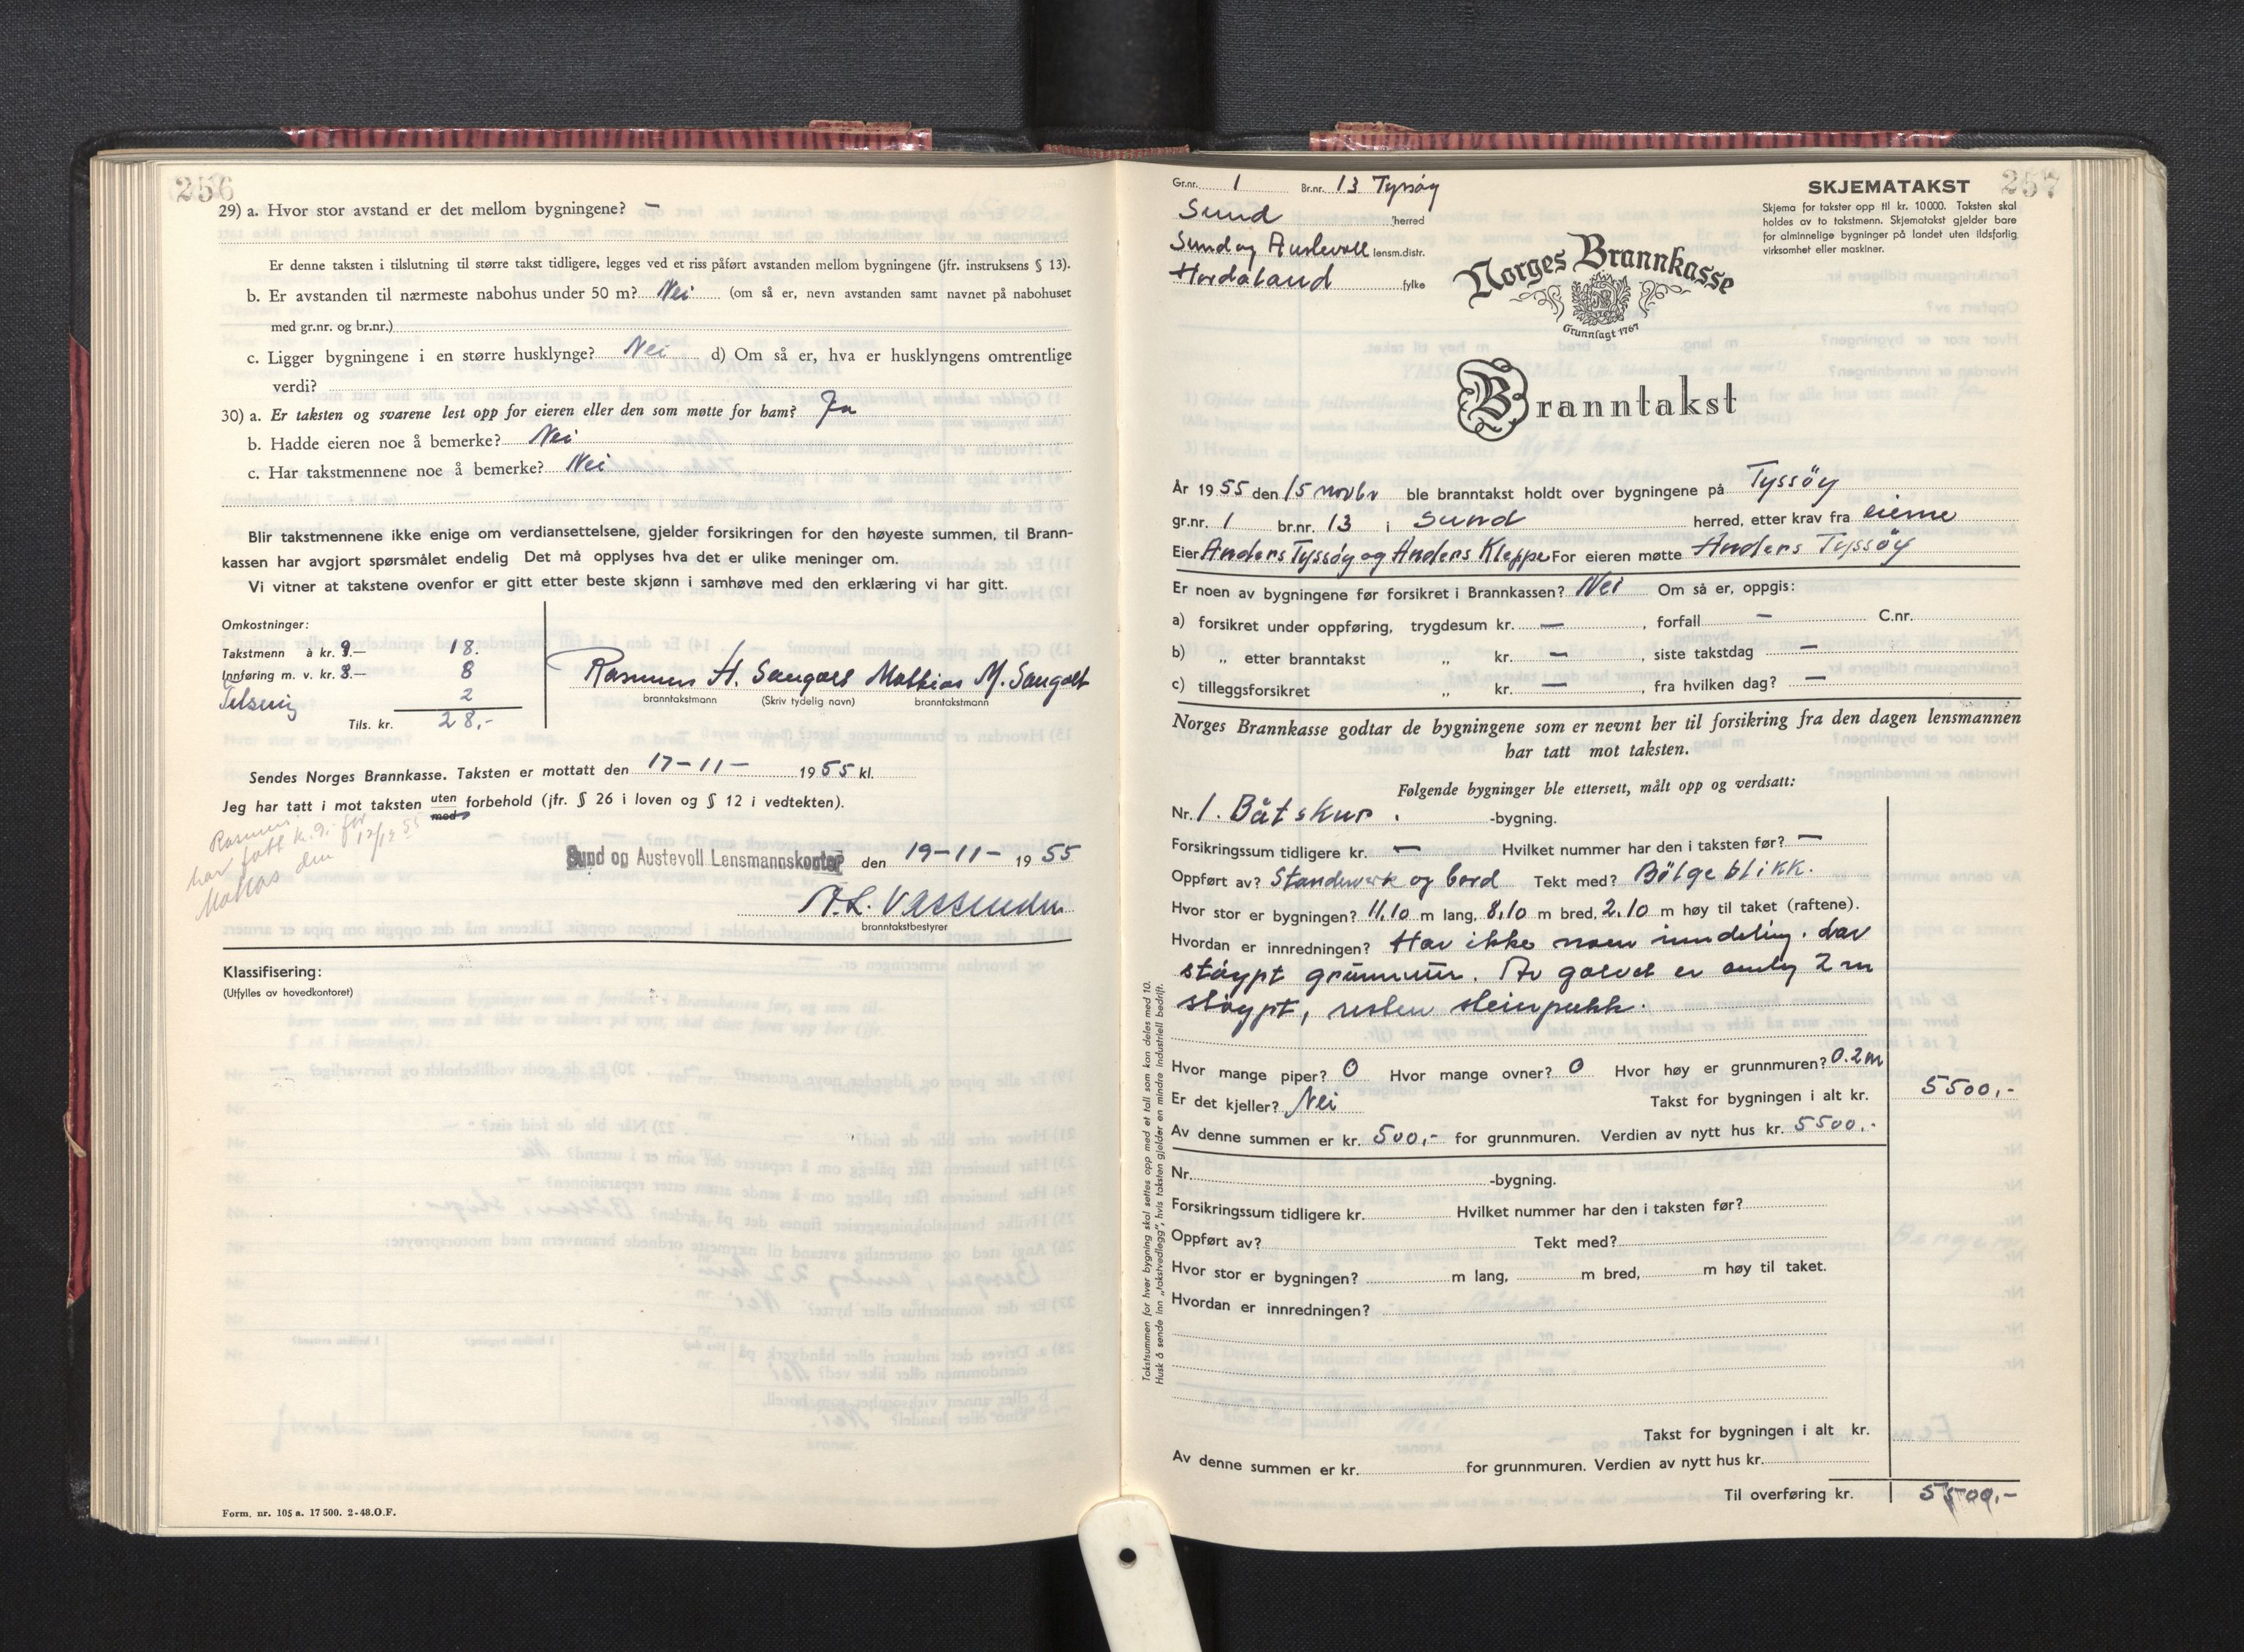 256
29) a. Hvor stor avstand er det mellom bygningene? –
Er denne taksten i tilslutning til større takst tidligere, legges ved et riss påført avstanden mellom bygningene (jfr. instruksens § 13).
b. Er avstanden til nærmeste nabohus under 50 m? Nei (om så er, nevn avstanden samt navnet på nabohuset
med gr.nr. og br.nr.)
c. Ligger bygningene i en større husklynge? Nei d) Om så er, hva er husklyngens omtrentlige
verdi?
30) a. Er taksten og svarene lest opp for eieren eller den som møtte for ham? Ja
b. Hadde eieren noe å bemerke? Nei
c. Har takstmennene noe å bemerke? Nei
Blir takstmennene ikke enige om verdiansettelsene, gjelder forsikringen for den høyeste summen, til Brann-
kassen har avgjort spørsmålet endelig Det må opplyses hva det er ulike meninger om.
Vi vitner at takstene ovenfor er gitt etter beste skjønn i samhøve med den erklæring vi har gitt.
Omkostninger:
Takstmenn à kr. 9.— 18.
Innføring m. v. kr. 8.— 8
2
Tils. kr. 28,-
Rasmus H. Sangolt Mathias M. Sangolt
branntakstmann (Skriv tydelig navn) branntakstmann
Sendes Norges Brannkasse. Taksten er mottatt den 17-11- 1955 kl.
Jeg har tatt i mot taksten uten forbehold (jfr. § 26 i loven og § 12 i vedtekten).
med
Rasmus
har fått k. 9,- for
Mathias den 17/12 55
Sund og Austevoll Lensmannskontor den 19-11- 1955
branntakstbestyrer
Klassifisering:
(Utfylles av hovedkontoret)
Form. nr. 105 a. 17 500. 2-48.O.F.
257
Gr.nr. 1 Br.nr. 13 Tyssöy
Sund herred
Sund og Austevoll lensm.distr.
Hordaland fylke
SKJEMATAKST
Skjema for takster opp til kr. 10 000. Taksten skal
holdes av to takstmenn. Skjematakst gjelder bare
for alminnelige bygninger på landet uten ildsfarlig
virksomhet eller maskiner.
Norges Brannkasse
Grunnlagt 1767
Branntakst
År 1955 den 15 novbr ble branntakst holdt over bygningene på Tyssöy
gr.nr. 1 br.nr. 13 i Sund herred, etter krav fra eierne
Eier Anders Tyssöy og Anders Kleppe For eieren møtte Anders Tyssöy
Er noen av bygningene før forsikret i Brannkassen? Nei Om så er, oppgis:
a) forsikret under oppføring, trygdesum kr. – , forfall – C.nr.
b) „ etter branntakst „ kr. – , siste takstdag –
c) tilleggsforsikret „ kr. – , fra hvilken dag? –
Norges Brannkasse godtar de bygningene som er nevnt her til forsikring fra den dagen lensmannen
har tatt mot taksten.
Følgende bygninger ble ettersett, målt opp og verdsatt:
Nr. 1. Båtskur. -bygning.
Forsikringssum tidligere kr. – Hvilket nummer har den i taksten før? –
Oppført av? Standerverk og bord Tekt med? Bölgeblikk.
Hvor stor er bygningen? 11,10 m lang, 8,10 m bred, 2,10 m høy til taket (raftene).
Hvordan er innredningen? Har ikke noen inndeling. har
stöypt grunnmur. Av golvet er omlag 2 m
stöypt, resten steinpukk.
Hvor mange piper? 0 Hvor mange ovner? 0 Hvor høy er grunnmuren? 0.2 m
Er det kjeller? Nei Takst for bygningen i alt kr. 5500,-
Av denne summen er kr. 500,- for grunnmuren. Verdien av nytt hus kr. 5500.-
Nr. -bygning.
Forsikringssum tidligere kr. Hvilket nummer har den i taksten før?
Oppført av? Tekt med?
Hvor stor er bygningen? m lang, m bred, m høy til taket.
Hvordan er innredningen?
Takst for bygningen i alt kr.
Av denne summen er kr. for grunnmuren. Verdien av nytt hus kr.
Til overføring kr. 5500.-
Takstsummen for hver bygning skal settes opp med et tall som kan deles med 10.
Husk å sende inn „takstvedlegg”, hvis taksten gjelder en mindre industriell bedrift.